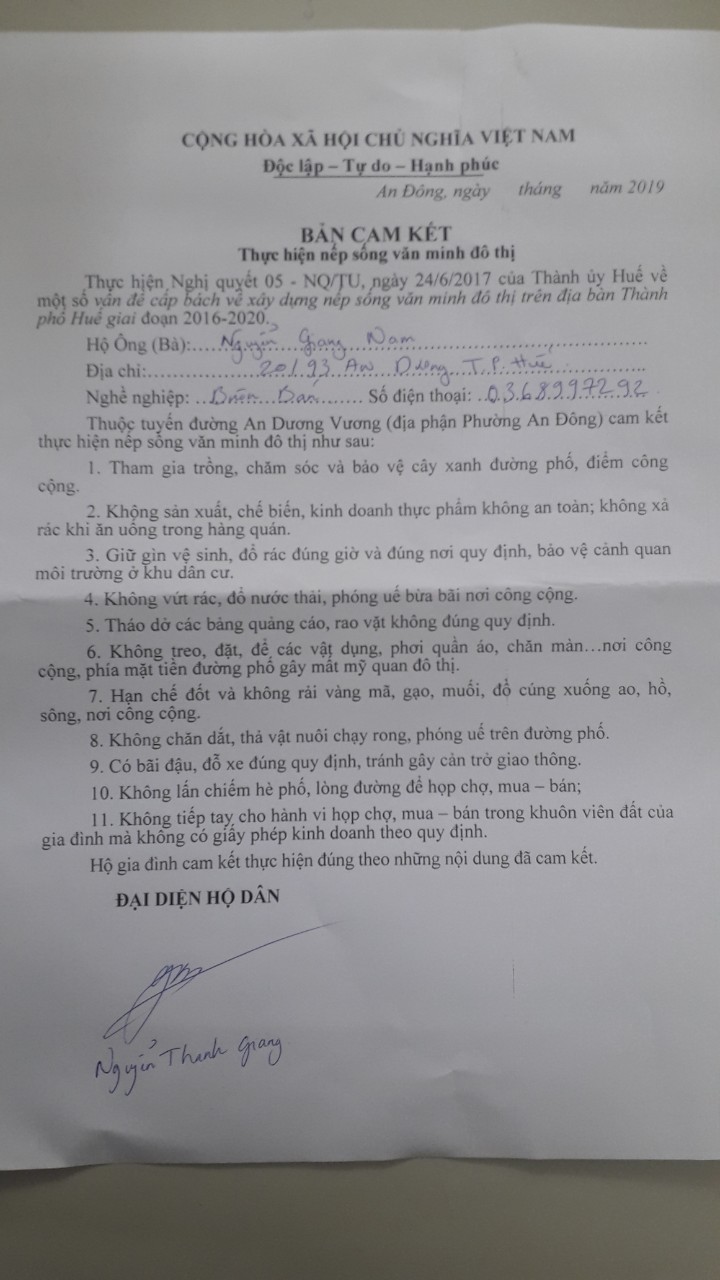 CỘNG HÒA XÃ HỘI CHỦ NGHĨA VIỆT NAM
Độc lập – Tự do – Hạnh phúc
An Đông, ngày tháng năm 2019
BẢN CAM KẾT
Thực hiện nếp sống văn minh đô thị
Thực hiện Nghị quyết 05 - NQ/TU, ngày 24/6/2017 của Thành ủy Huế về
một số vấn đề cấp bách về xây dựng nếp sống văn minh đô thị trên địa bàn Thành
phố Huế giai đoạn 2016-2020.
Hộ Ông (Bà): Nguyễn Giang Nam
Địa chỉ: 20/93 An Dương T.P. Huế
Nghề nghiệp: Buôn Bán Số điện thoại: 0368997292
Thuộc tuyến đường An Dương Vương (địa phận Phường An Đông) cam kết
thực hiện nếp sống văn minh đô thị như sau:
1. Tham gia trồng, chăm sóc và bảo vệ cây xanh đường phố, điểm công
cộng.
2. Không sản xuất, chế biến, kinh doanh thực phẩm không an toàn; không xả
rác khi ăn uống trong hàng quán.
3. Giữ gìn vệ sinh, đổ rác đúng giờ và đúng nơi quy định, bảo vệ cảnh quan
môi trường ở khu dân cư.
4. Không vứt rác, đổ nước thải, phóng uế bừa bãi nơi công cộng.
5. Tháo dở các bảng quảng cáo, rao vặt không đúng quy định.
6. Không treo, đặt, để các vật dụng, phơi quần áo, chăn màn…nơi công
cộng, phía mặt tiền đường phố gây mất mỹ quan đô thị.
7. Hạn chế đốt và không rải vàng mã, gạo, muối, đồ cúng xuống ao, hồ,
sông, nơi công cộng.
8. Không chăn dắt, thả vật nuôi chạy rong, phóng uế trên đường phố.
9. Có bãi đậu, đỗ xe đúng quy định, tránh gây cản trở giao thông.
10. Không lấn chiếm hè phố, lòng đường để họp chợ, mua – bán;
11. Không tiếp tay cho hành vi họp chợ, mua – bán trong khuôn viên đất của
gia đình mà không có giấy phép kinh doanh theo quy định.
Hộ gia đình cam kết thực hiện đúng theo những nội dung đã cam kết.
ĐẠI DIỆN HỘ DÂN
Nguyễn Thanh Giang